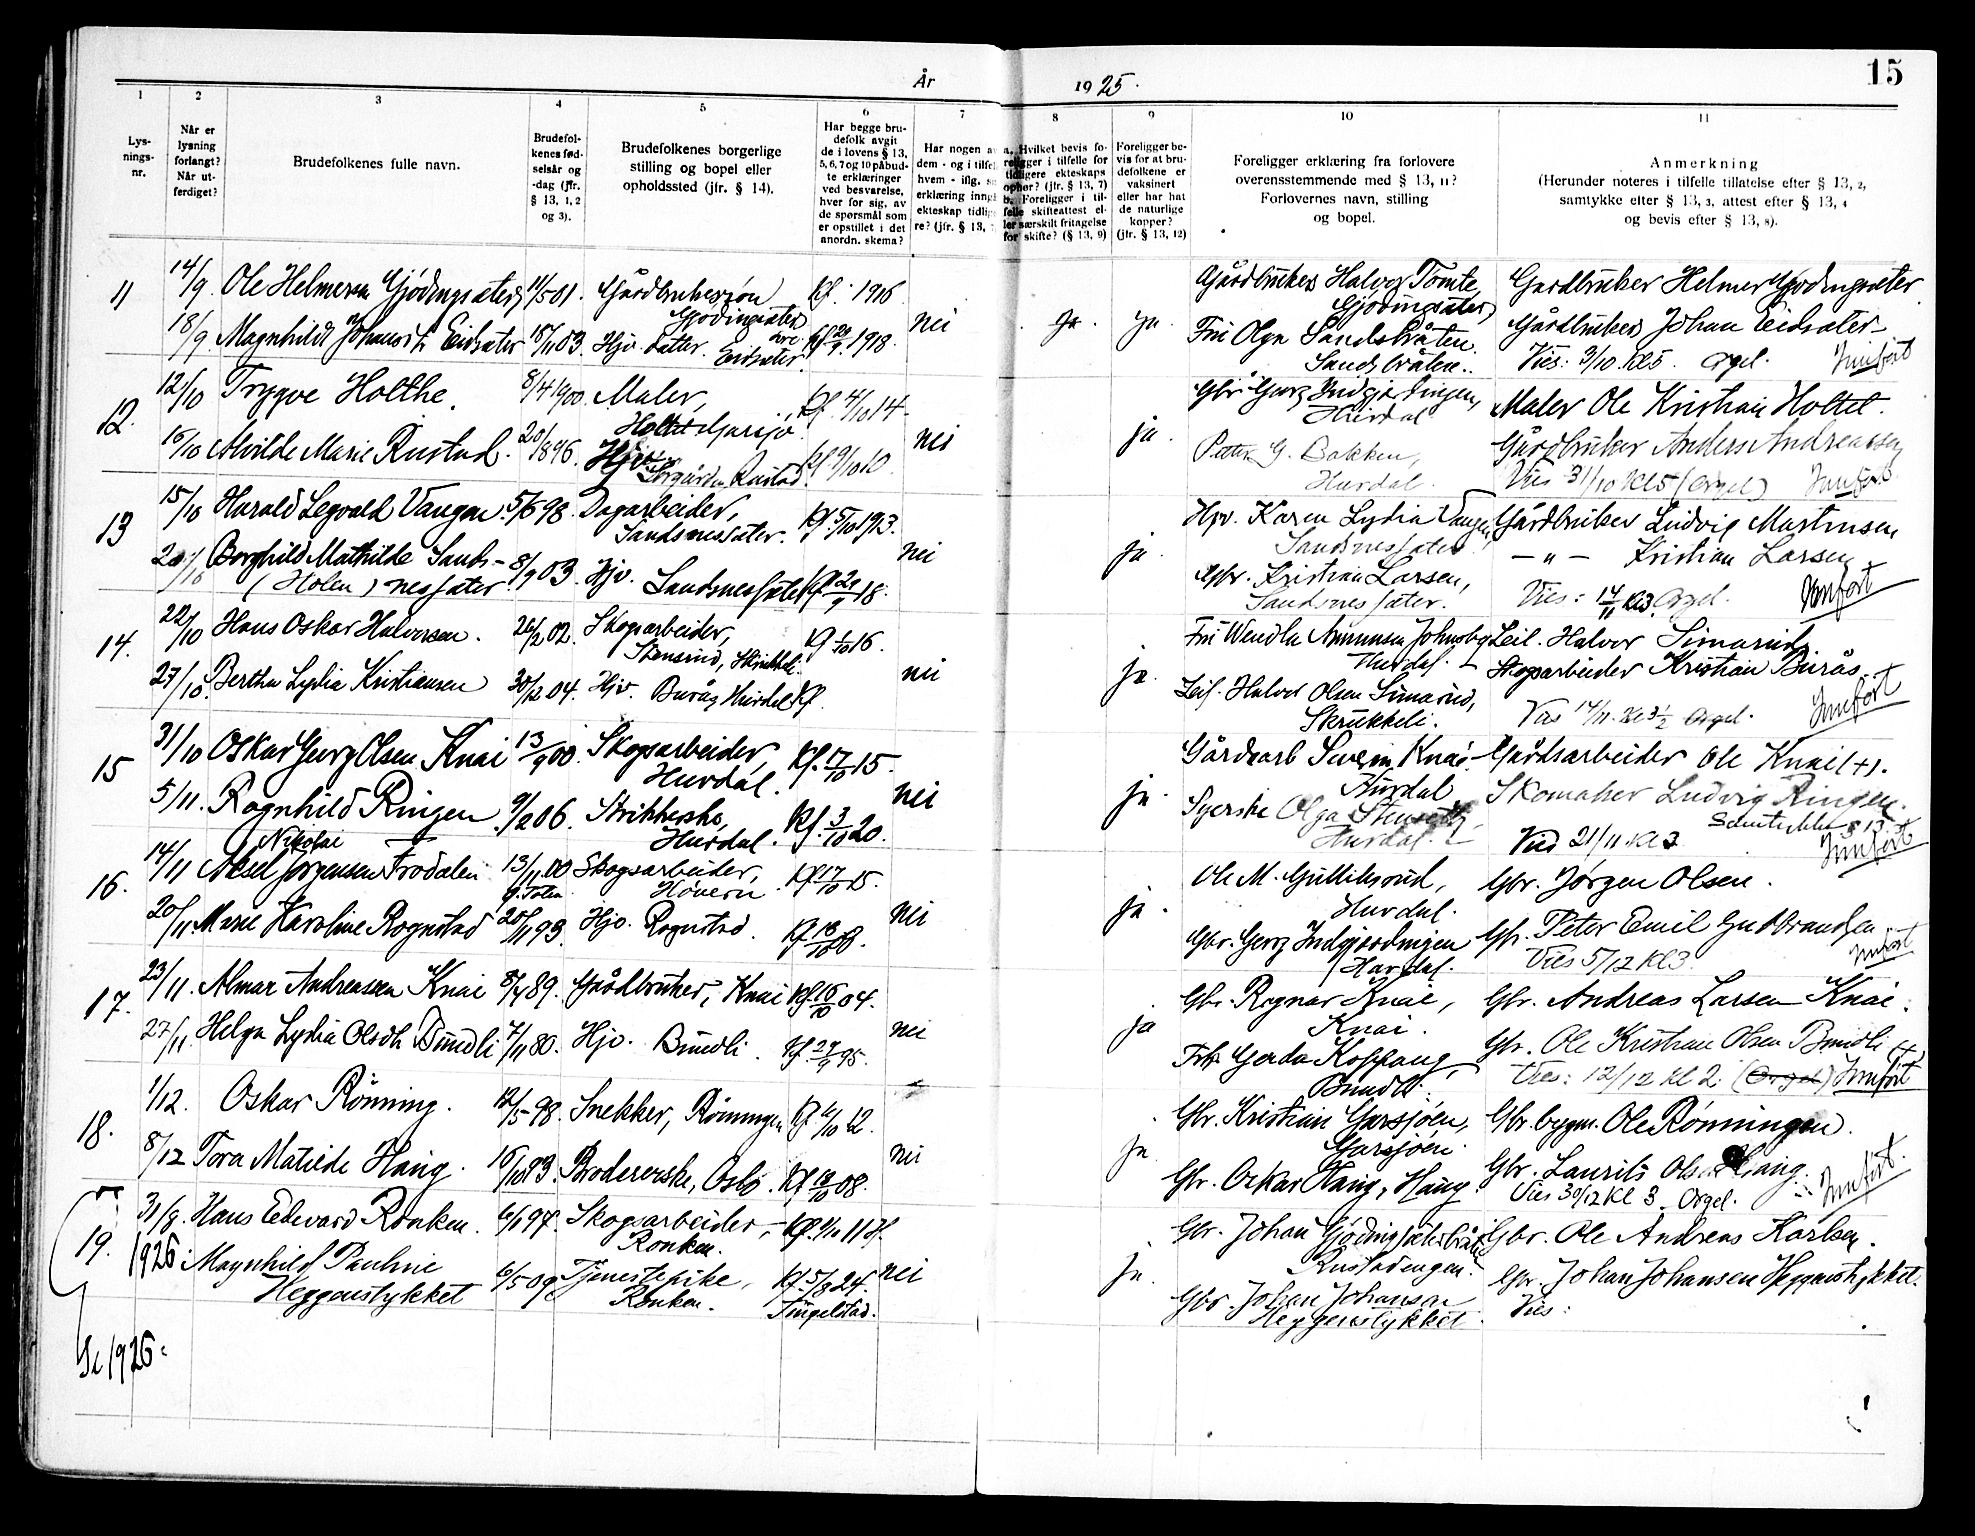 15
År 1925.
1 2 3 4 5 6 7 8 9 10 11
Lysningsnr.
Når er lysning forlangt? Når utferdiget?
Brudefolkenes fulle navn.
Brudefolkenes fødselsår og -dag (jfr. § 13, 1, 2 og 3).
Brudefolkenes borgerlige stilling og bopel eller opholdssted (jfr. § 14).
Har begge brudefolk avgit de i lovens § 13, 5, 6, 7 og 10 påbudte erklæringer ved besvarelse, hver for sig, av de spørsmål som er opstillet i det anordn. skema?
Har nogen av dem - og i tilfel hvem - iflg. erklæring inngå ekteskap tidlig re? (jfr. § 13,
a. Hvilket bevis foreligger i tilfelle for tidligere ekteskaps ophør? (jfr. § 13, 7) b. Foreligger i tilfelle skifteattest eller særskilt fritagelse for skifte? (§ 13, 9)
Foreligger bevis for at brudefolkene er vaksinert eller har hat de naturlige kopper? (jfr. § 13, 12)
Foreligger erklæring fra forlovere overensstemmende med § 13, 11? Forlovernes navn, stilling og bopel.
Anmerkning (Herunder noteres i tilfelle tillatelse efter § 13, 2, samtykke efter § 13, 3, attest efter § 13, 4 og bevis efter § 13, 8).
11 14/9 Ole Helmersen Gjødingsæter 14/5 01. Gårdbrukersøn Gjødingsæter Kf. 1916. nei ja. ja. Gårdbruker Halvor Tømte, Gjødingsæter, Gardbruker Helmer Gjødingsæter
18/9 Magnhild Johansdt. Eidsæter 18/11 03. Hjv. datter. Eidsæter. Kf. 29/9 1918. Fru Olga Sandsbråten Sandsbråten. Gårdbruker Johan Eidsæter
Vies: 3/10. Kl 5. orgel. Innført
12. 12/10 Trygve Holthe. 8/4 1900. Maler, Garsjø. Kf. 4/10 14. nei ja. Gbr. Georg Indgjærdingen, Hurdal Maler Ole Kristian Holtet.
15/10 Alvilde Marie Rustad. 20/ 1896. Hjv. Rustad. Kf 9/10 10. Petter G. Bakken, Hurdal. Gårdbruker Anders Andreassen
Vies 31/10 Kl 5 (Orgel) Innført
13 15/10 Harald Legvald Vangen. 5/6 98. Dagarbeider, Sandsnessæter. Kf. 5/10 1913. nei ja. Hjv. Karen Lydia Vangen, Sandsnessæter. Gårdbruker Ludvig Martinsen
20/10 Borghild Mathilde Sands- (Holen) nessæter. 8/9 03. Hjv. Sandsnessæter Kf 29/9 18. Gbr. Kristian Larsen, Sandsnessæter. — " — Kristian Larsen
Vies: 14/11 Kl 3. Orgel. Innført
14. 22/10 Hans Oskar Halvorsen. 26/2 02. Skogsarbeider, Skrukkeli. Kf 1/10 16. nei ja. Fru Wendla Amundsen Johnsby Hurdal. Leil. Halvor Simarud
27/10. Bertha Lydia Kristiansen 30/12 04. Hjv. Burås, Hurdal Kf Leil. Halvor Olsen Simarud, Skrukkeli. Skogsarbeider Kristian Burås.
Vies 14/11. Kl 3 1/2 Orgel. Innført
15 31/10 Oskar Georg Olsen Knai 13/9 00. Skogsarbeider, Hurdal. Kf. 17/10 15. nei ja. Gårdsarb Severin Knai Hurdal Gårdsarbeider Ole Knai (+).
5/11. Ragnhild Ringen 9/2 06. Strikkerske, Hurdal. Kf. 3/10 20. Syerske Olga Hurdal. Skomaker Ludvig Ringen.
Samtykke § 13.
Vies 21/11. Kl 3 Innført
16. 14/11 Aksel Nikolai Jørgensen Frodalen 13/11 00 Skogsarbeider, Høverli Kf 17/10 15. nei ja. Ole M. Gulliksrud, Hurdal. Gbr. Jørgen Olsen.
20/11. Marie Karoline Rognstad 20/11 93. Hjv. Rognstad. Kf 18/10 08. Gbr. Georg Indgjærdingen Hurdal. Gbr. Peter Emil Gudbrandsen
Vies 5/12 Kl 3 Innført
17. 23/11. Almar Andreassen Knai 8/4 89. Gårdbruker, Knai Kf. 16/10 04. nei ja Gbr. Ragnar Knai, Knai. Gbr. Andreas Larsen Knai.
27/11. Helga Lydia Olsdtr. Bundli 7/11 80. Hjv. Bundli. Kf. 29/9 95. Frk. Gerda Koppang, Bundli. Gbr. Ole Kristian Olsen Bundli (+)
Vies: 12/12 Kl 2. (Orgel) Innført
18. 1/12. Oskar Rønning. 12/5 98. Snekker, Rønningen Kf. 4/10 12. nei ja. Gbr. Kristian Garsjøen, Garsjøen. Gbr. bygm. Ole Rønningen.
8/12 Tora Matilde Haug. 16/10 93. Brodererske, Oslo. Kf. 18/10 08. Gbr. Oskar Haug, Haug. Gbr. Laurits Olsen Haug.
Vies 30/12 Kl 3. Orgel. Innført
19. 31/8. Hans Edvard Ronken. 6/1 97. Skogsarbeider, Ronken. Kf. 1/10 11 nei ja. Gbr. Johan Gjødingsæterbråten Rustadengen. Gbr. Ole Andreas Karlsen.
1926 Magnhild Pauline Heggenstykket 6/5 09. Tjenestepike, Ronken. Kf. 5/8 24. Fingelstad. Gbr. Johan Johansen Heggenstykket. Gbr. Johan Johansen Heggenstykket.
Vies:
Se 1926.